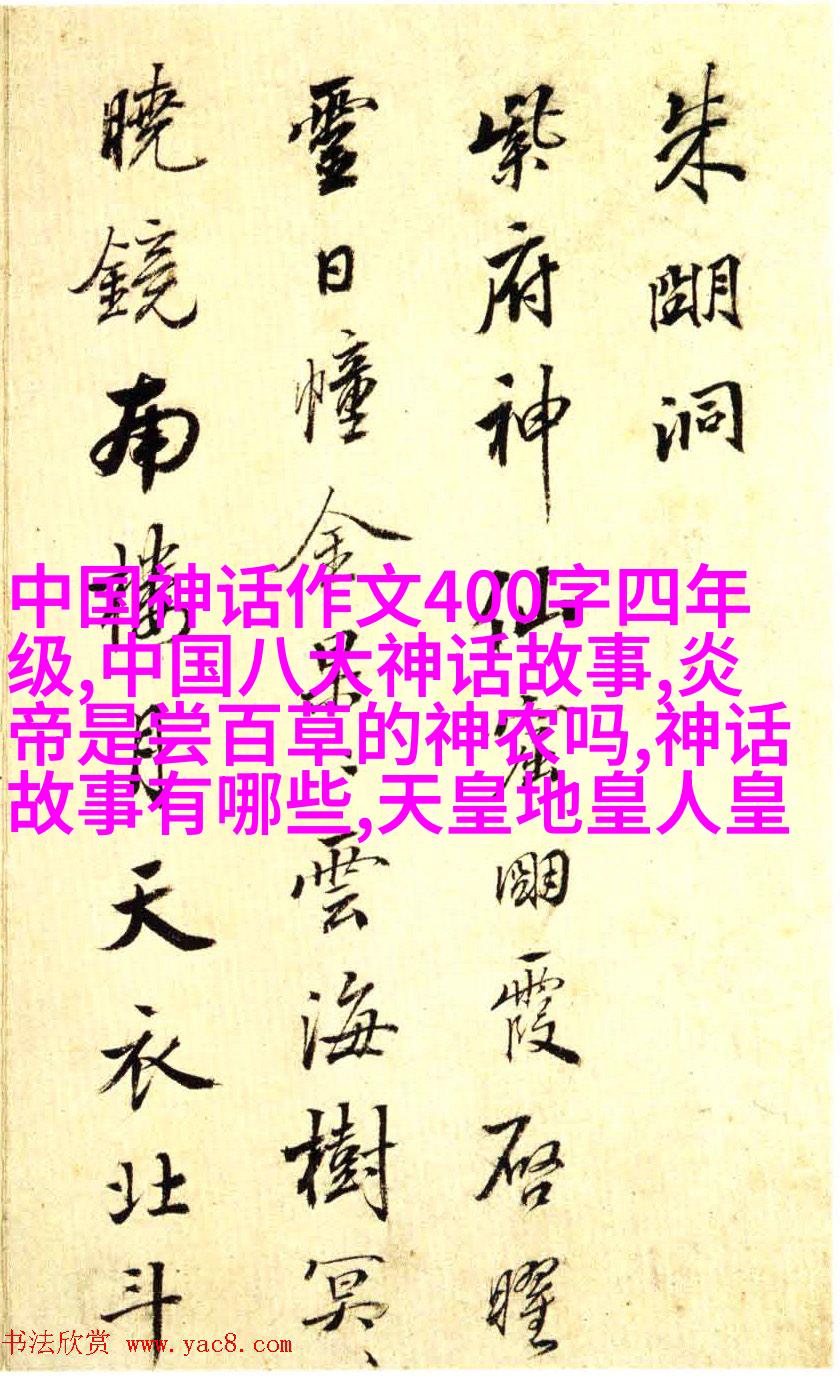 朱朙洞
紫府神仙朙霞啓曜
靈日幢金雲海樹冥〻
曉鏡南樓月天衣北斗
中国神话作文400字四年
级,中国八大神话故事,炎
帝是尝百草的神农吗,神话
故事有哪些,天皇地皇人皇
书法欣赏 www.yac8.com